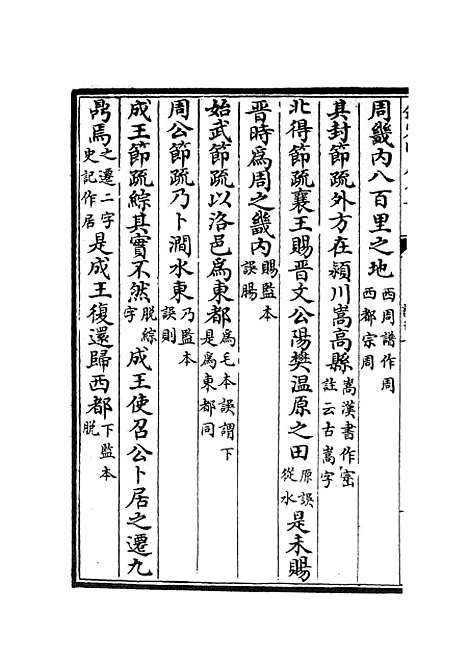 周畿内八百里之地西周譜作周西都宗周
其封節疏外方在潁川嵩高縣嵩漢書作崈註云古嵩字
北得節疏襄王賜晉文公陽樊温原之田原誤從水是未賜
晉時爲周之畿内賜監本誤腸
始武節疏以洛邑爲東都爲毛本誤謂下是爲東都同
周公節疏乃卜澗水東乃監本誤則
成王節疏綜其實不然脱綜字成王使召公卜居之遷九
鼎焉之遷二字史記作居是成王復還歸西都下監本脱